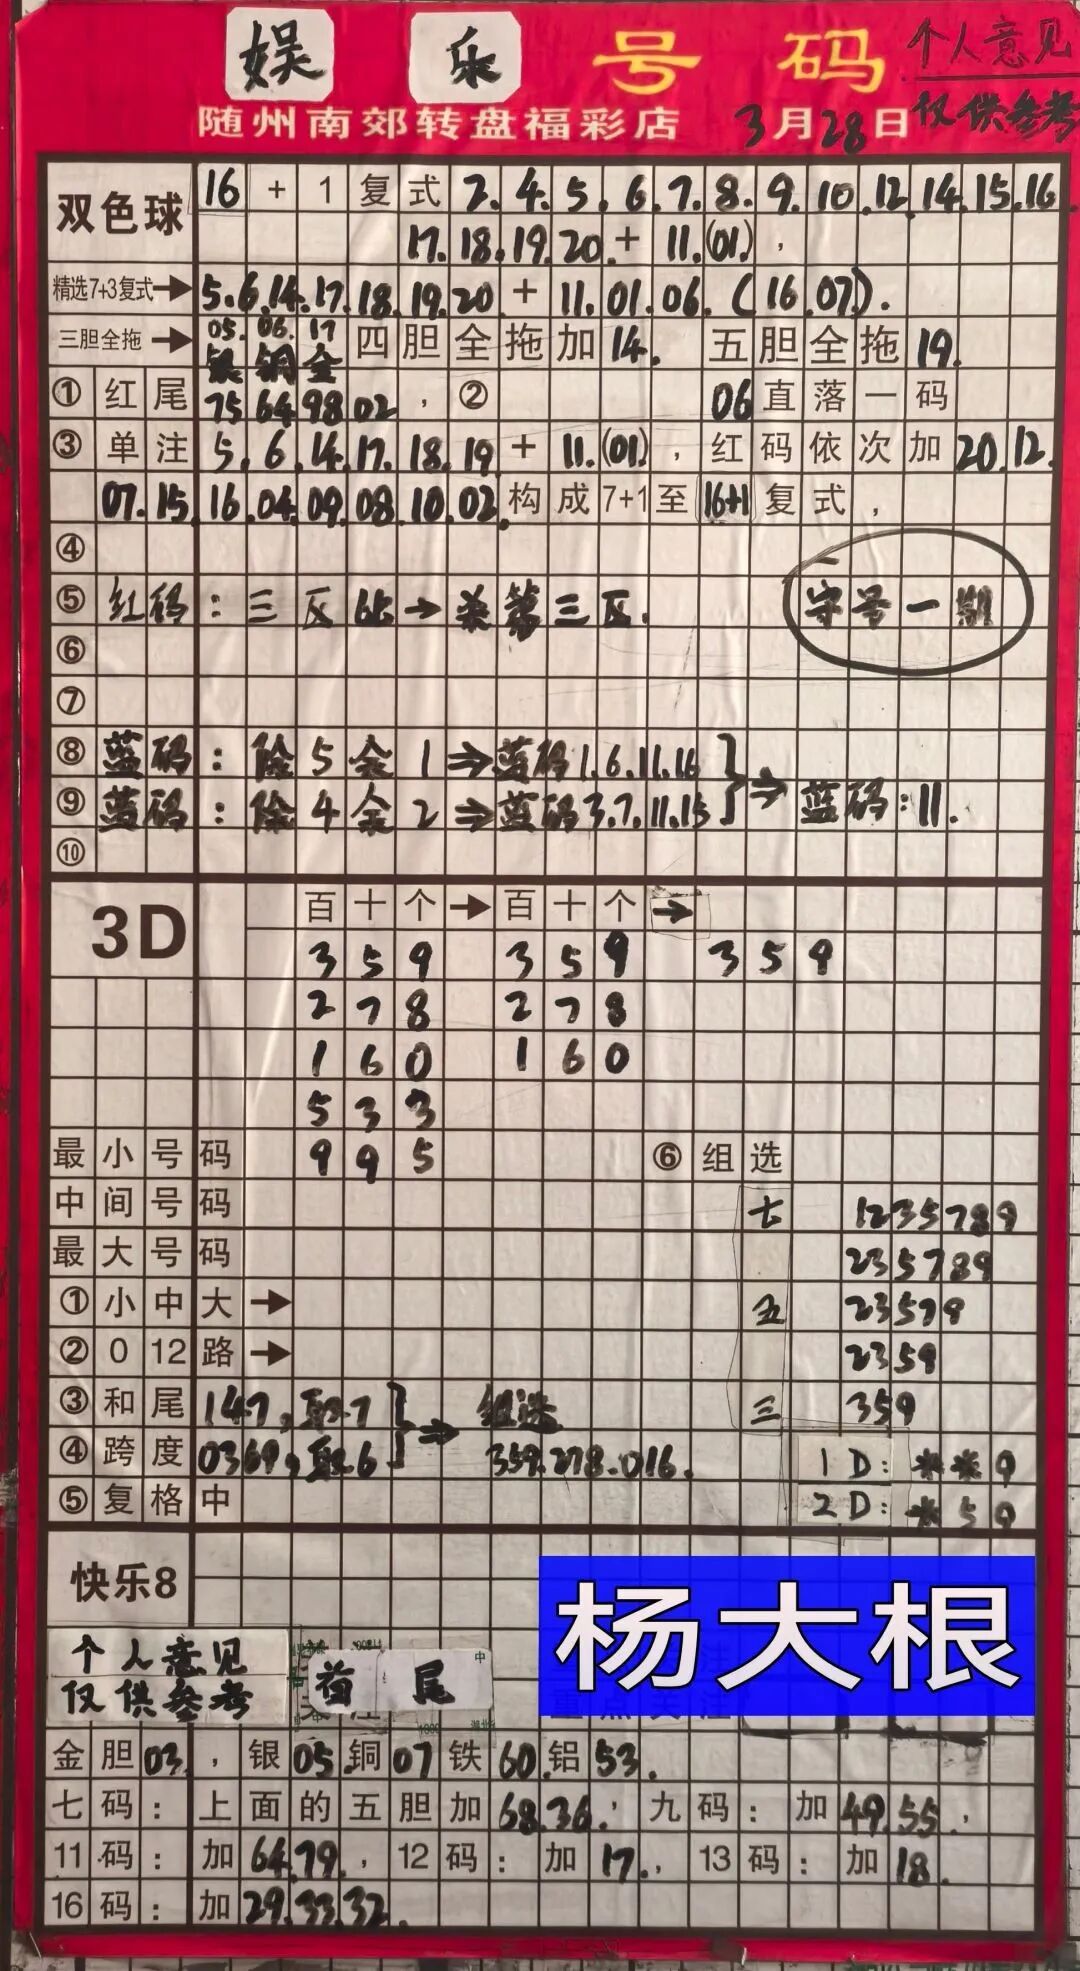 娱乐号码 个人意见
仅供参考
随州南郊转盘福彩店 3月28日
双色球 16+1复式2.4.5.6.7.8.9.10.12.14.15.16.
17.18.19.20+11.(01),
精选7+3复式→5.6.14.17.18.19.20+11.01.06.(16.07).
三胆全拖→05.06.17四胆全拖加14.五胆全拖19.
银铜金
①红尾75 64 98 02,②06直落一码
③单注5.6.14.17.18.19+11.(01),红码依次加20.12.
07.15.16.04.09.08.10.02.构成7+1至16+1复式,
④
⑤红码:三区比→杀第三区. 守号一期
⑥
⑦
⑧蓝码:除5余1⇒蓝码1.6.11.16
⑨蓝码:除4余2⇒蓝码3.7.11.15 ⇒蓝码:11.
⑩
3D 百十个→百十个→
359 359 359
278 278
160 160
533
最小号码 995 ⑥组选
中间号码 七 1235789
最大号码 235789
①小中大→ 五 23579
②012路→ 2359
③和尾147,取7 组选 三 359
④跨度0369,取6 ⇒ 359.278.016. 1D:**9
⑤复格中 2D:*59
快乐8
杨大根
个人意见
仅供参考 首尾
重点关注
金胆03,银05.铜07铁60.铝53.
七码:上面的五胆加68.36;九码:加49.55,
11码:加64.79.,12码:加17.,13码:加18.
16码:加29.33.32.